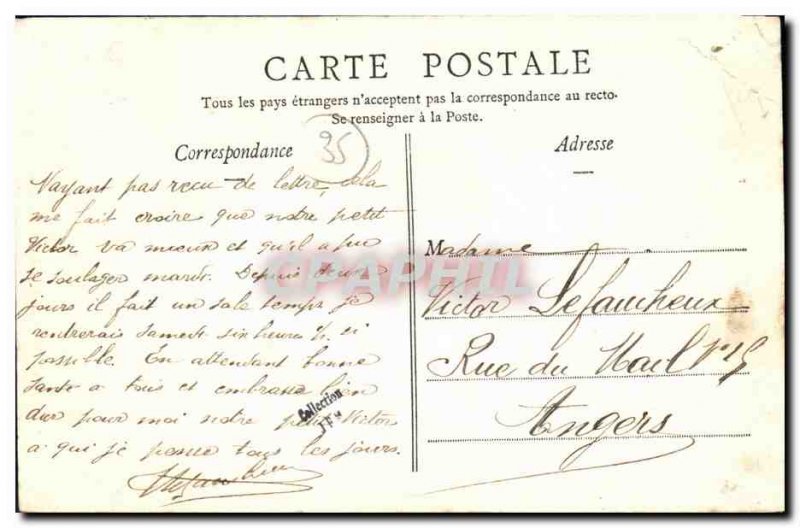 CARTE POSTALE
Tous les pays étrangers n'acceptent pas la correspondance au recto.
Se renseigner à la Poste.
Correspondance
35
Adresse
N'ayant pas recu de lettre, cela
me fait croire que notre petit
Victor va mieux et qu'il a pu
se soulager mardi. Depuis deux
jours il fait un sale temps je
rentrerais Samedi six heures ½ si
possible. En attendant bonne
Santé a tous et embrasse bien
dur pour moi notre petit Victor
a qui je pense tous les jours.
Madame
Victor Lefaucheux
Rue du Mail N° 19
Angers
Collection
CPAPHIL